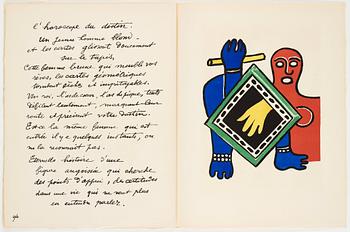 l'horoscope du destin.
Un jeune homme blond.
et les cartes glissent doucement
sur le tapis,
Cette femme brune qui meuble vos
rêves, les cartes géométriques
tombent sèches et impitoyables.
Un roi, l'as de cœur, l'as de pique, tout
défilent lentement, marquant leur
route et précisent votre destin.
Est-ce la même femme qui est
entrée il y a quelques instants, on
ne la reconnaît pas.
Eternelle histoire d'une
figure angoissée qui cherche
des points d'appui, des certitudes
dans une vie qui ne veut plus
en entendre parler.